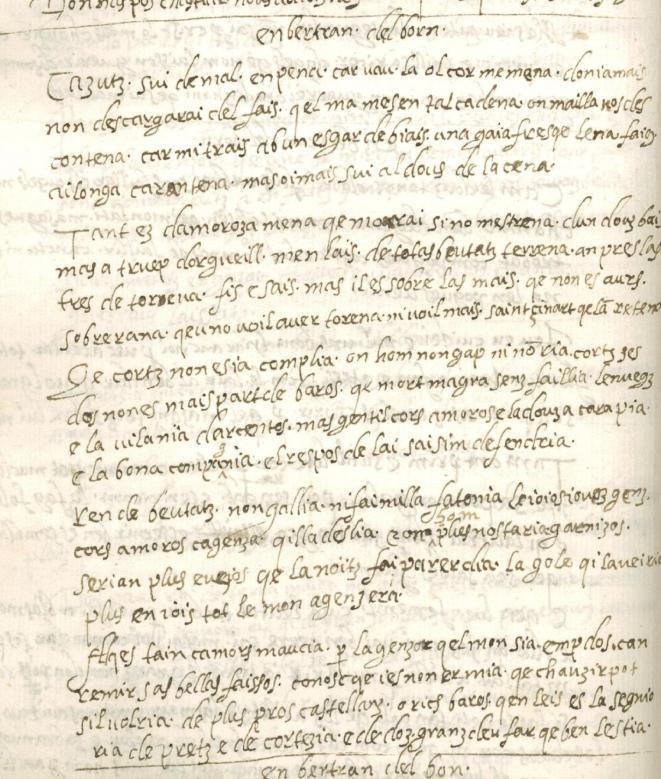 en bertran. del born.
Cazutz. sui de mal. en pena. car vau. la ol cor me mena. don iamais
non descargarai del fais. qel ma mes en tal cadena. on mailla nos des
contena. car mi trais ab un esgar de biais. una gaia fresqe lena faig
ai longa carantena. mas oimais sui al dous de la cena.
Tant ez damoroza mena qe morrai si no mestrena. dun douz bais
mas a truep dorgueill. men lais. de totas beutatz terrena. an pres las
tres de torena. fis e sais. mas il es sobre las mais. qe non es aurs.
sobre rana. qeu no voil aver torena. ni voil mais. saint
Qe cortz non es ia complia. on hom non gap ni no ria. cortz ses
dos non es mais part de baros. qe mort magra senz faillia. lenuegz
e la vilania darcentos. mas gentils cors amoros e la douza cara pia.
e la bona compagnia. el respos de lai saisim defendria.
Ren de beutatz. non gallia. ni fai milla fatonia. le ioios iovez genz.
cors amoros cagenza. qilla deslia. e on plus nostaria garnizos.
serian plus evejos qe la noitz fai parer dia. la gole qi la veiria
plus en iois tot le mon agenzera
Alqes tain camors maucia. per la genzor qel mon sia. em pdos. can
remir. sas bellas faissos. conosc qe ies non er mia. qe chauzir pot
sil volria. de plus pros castellanz. o rics baros. qen leis es la segnio
ria de pretz e de cortezia. e de doz granz deu far qe ben lestia.
en bertran del bon.